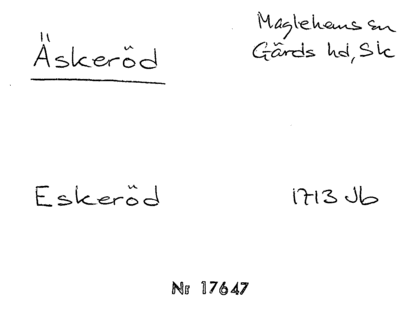 Äskeröd
Maglehems sn
Gärds hd, Sk
Eskeröd
1713 Jb
Nr 17647